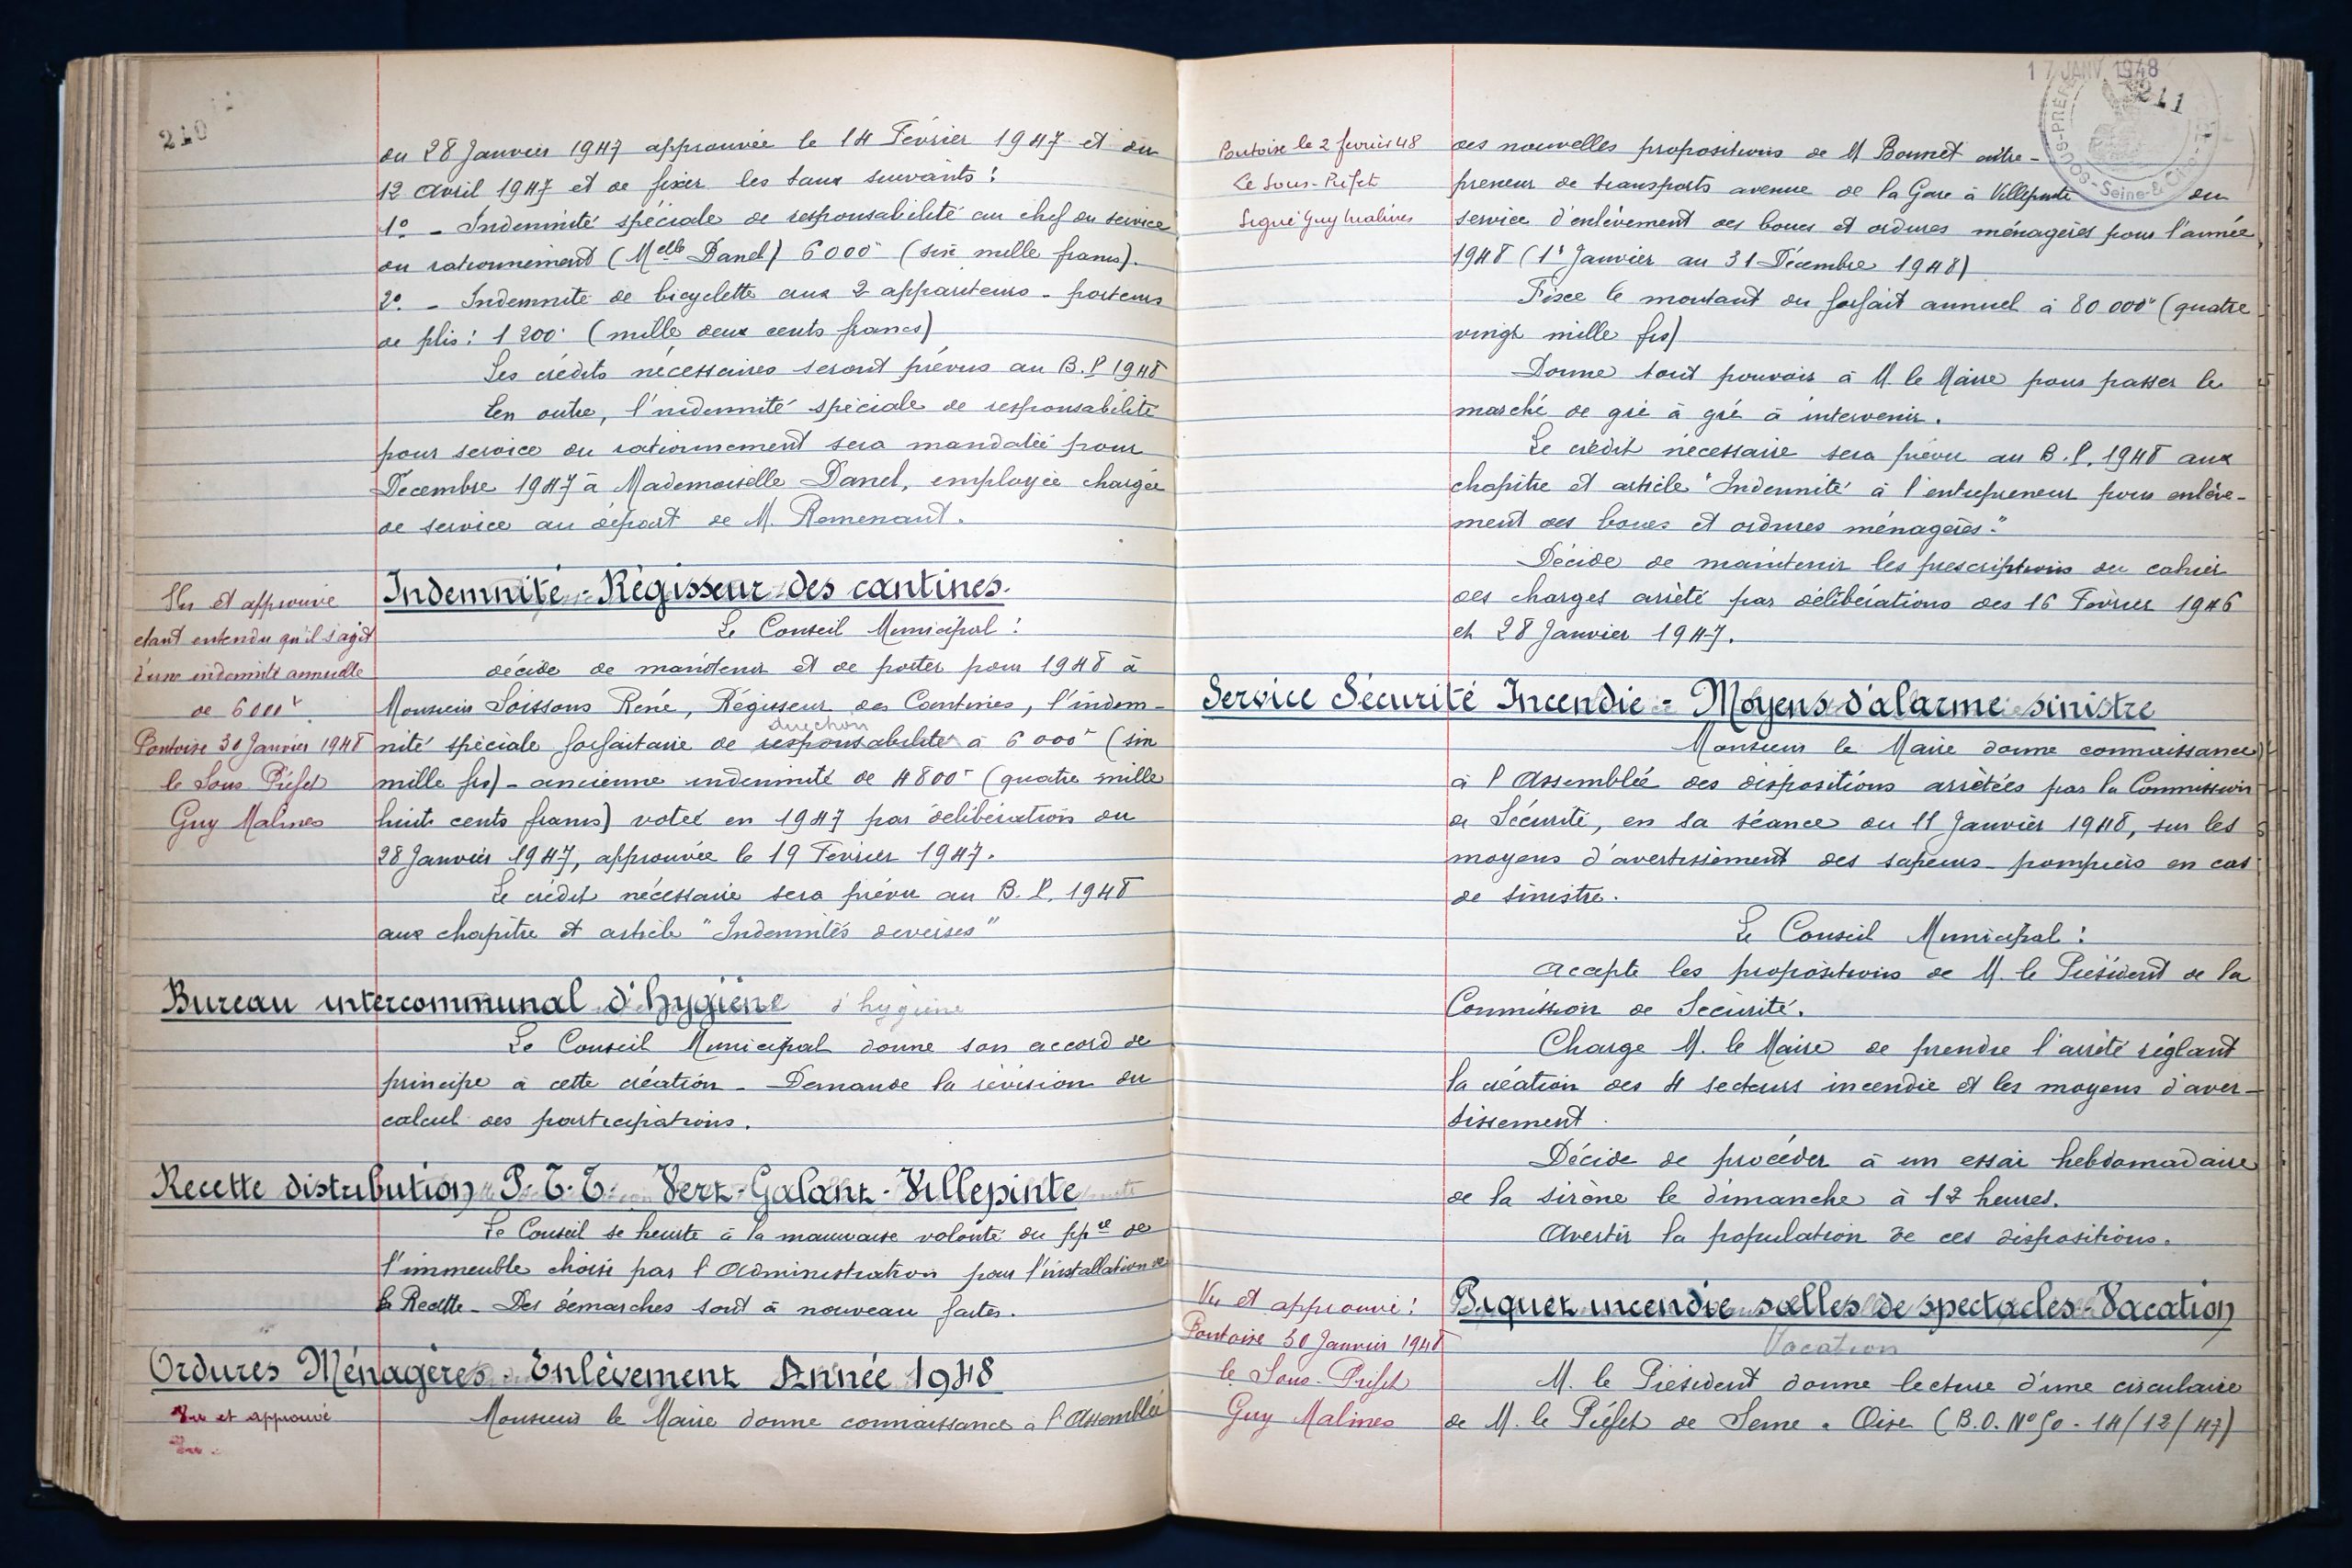 210
du 28 Janvier 1947 approuvée le 14 Février 1947 et du
12 avril 1947 et de fixer les taux suivants :
1° - Indemnité spéciale de responsabilité au chef du service
du rationnement (Melle Danel) 6000 (six mille francs).
2° - Indemnité de bicyclette aux 2 appariteurs - porteurs
de plis : 1 200 (mille deux cents francs)
Les crédits nécessaires seront prévus au B.P 1948
En outre, l'indemnité spéciale de responsabilité
pour service du rationnement sera mandatée pour
Décembre 1947 à Mademoiselle Danel, employée chargée
de service au départ de M. Remenant.
Indemnité - Régisseur des cantines.
Le Conseil Municipal :
décide de maintenir et de porter pour 1948 à
Monsieur Soissons René, Régisseur des Cantines, l'indem-
duchon
nité spéciale forfaitaire de responsabilité à 6 000 (six
mille frs) - ancienne indemnité de 4800 (quatre mille
huit cents francs) votée en 1947 par délibération du
28 Janvier 1947, approuvée le 19 Février 1947.
Le crédit nécessaire sera prévu au B.P. 1948
aux chapitre et article "Indemnités diverses"
Vu et approuvé
étant entendu qu'il s'agit
d'une indemnité annuelle
de 6000 f
Pontoise 30 Janvier 1948
le Sous Préfet
Guy Malines
Bureau intercommunal d'hygiène d'hygiène
Le Conseil Municipal donne son accord de
principe à cette création - Demande la révision du
calcul des participations.
Recette distribution P.T.T. Vert-Galant-Villepinte
Le Conseil se heurte à la mauvaise volonté du ppre de
l'immeuble choisi par l'Administration pour l'installation de
la Recette - Des démarches sont à nouveau faites.
Ordures Ménagères - Enlèvement Année 1948
Vu et approuvé
Monsieur le Maire donne connaissance à l'Assemblée
17 JANV 1948
211
SOUS-PRÉF
Seine-&-Oise
Pontoise le 2 février 48
Le Sous-Préfet
Signé Guy Malines
des nouvelles propositions de M Bonnet entre-
preneur de transports avenue de la Gare à Villepinte du
service d'enlèvement des boues et ordures ménagères pour l'année
1948 (1r Janvier au 31 Décembre 1948)
Fixe le montant du forfait annuel à 80 000 (quatre
vingt mille frs)
Donne tout pouvoir à M. le Maire pour passer le
marché de gré à gré à intervenir.
Le crédit nécessaire sera prévu au B.P. 1948 aux
chapitre et article "Indemnité à l'entrepreneur pour enlève-
ment des boues et ordures ménagères."
Décide de maintenir les prescriptions du cahier
des charges arrêté par délibérations des 16 Février 1946
et 28 Janvier 1947.
Service Sécurité Incendie - Moyens d'alarme sinistre
Monsieur le Maire donne connaissance
à l'Assemblée des dispositions arrêtées par la Commission
de Sécurité, en sa séance du 11 Janvier 1948, sur les
moyens d'avertissement des sapeurs-pompiers en cas
de sinistre.
Le Conseil Municipal :
accepte les propositions de M. le Président de la
Commission de Sécurité.
Charge M. le Maire de prendre l'arrêté réglant
la création des 4 secteurs incendie et les moyens d'aver-
tissement.
Décide de procéder à un essai hebdomadaire
de la sirène le dimanche à 12 heures.
Avertir la population de ces dispositions.
Piquet incendie salles de spectacles - Vacation
Vacation
Vu et approuvé :
Pontoise 30 Janvier 1948
le Sous-Préfet
Guy Malines
M. le Président donne lecture d'une circulaire
de M. le Préfet de Seine & Oise (B.O. N° 50 - 14/12/47)